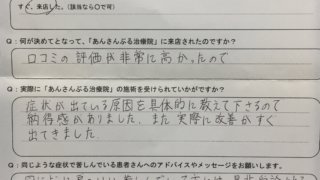 すぐ、来店した。（該当なら○で可）
Q：何が決めてとなって、「あんさんぶる治療院」に来店されたのですか？
口コミの評価が非常に高かったので
Q：実際に「あんさんぶる治療院」の施術を受けられていかがですか？
症状が出ている原因を具体的に教えて下さるので
納得感がありました。また実際に改善がすぐ
出てきました。
Q：同じような症状で苦しんでいる患者さんへのアドバイスやメッセージをお願いします。